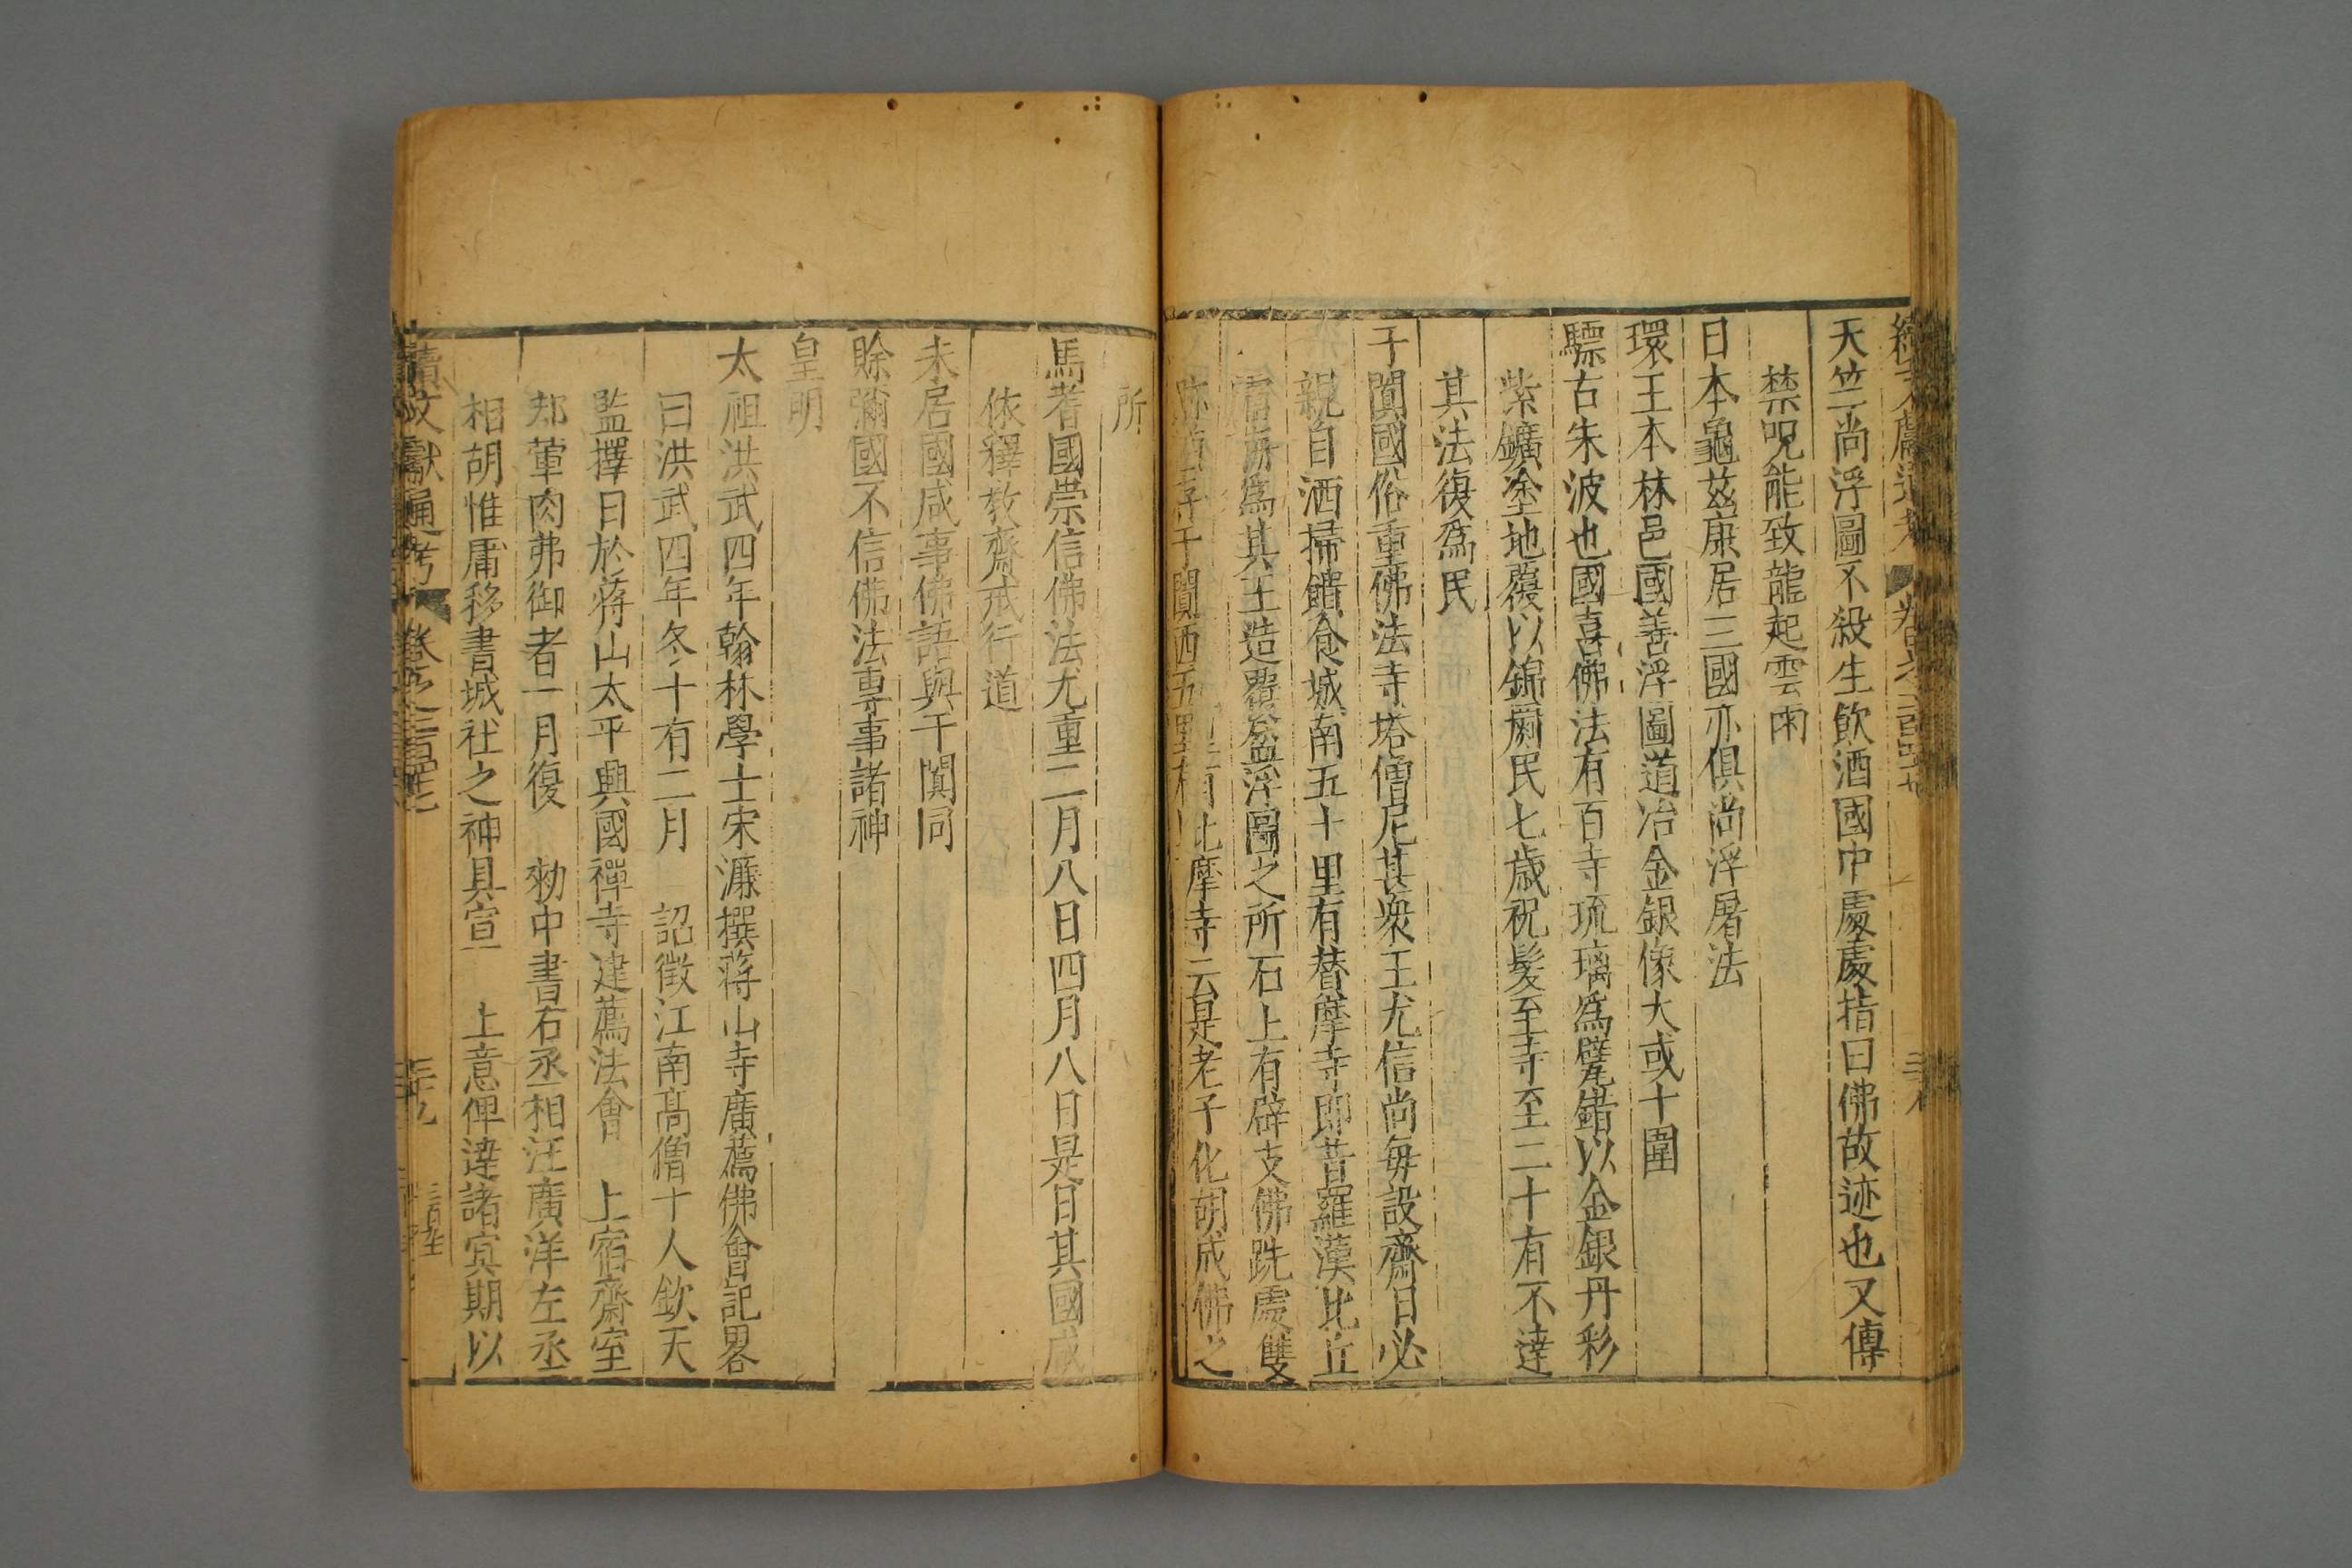 天竺尚浮圖不殺生飲酒國中處處指曰佛故迹也又傳
禁呪能致龍起雲雨
日本龜茲康居三國亦俱尚浮屠法
環王本林邑國善浮圖道冶金銀像大或十圍
驃古朱波也國喜佛法有百寺琉璃爲甓錯以金銀丹彩
紫鑛塗地覆以錦罽民七歲祝髮至寺至二十有不達
其法復爲民
于闐國俗重佛法寺塔僧尼甚衆王尤信尚每設齋日必
親自洒掃饋食城南五十里有替摩寺即昔羅漢比丘
爲其王造覆盆浮圖之所石上有辟支佛跣處雙
于闐西五里比摩寺云是老子化胡成佛之
所
焉耆國崇信佛法尤重二月八日四月八日是日其國咸
依釋教齋戒行道
未居國咸事佛語與于闐同
賒彌國不信佛法專事諸神
皇明
太祖洪武四年翰林學士宋濂撰蔣山寺廣薦佛會記畧
曰洪武四年冬十有二月 詔徵江南高僧十人欽天
監擇日於蔣山太平興國禪寺建薦法會 上宿齋室
却葷肉弗御者一月復 勑中書右丞相汪廣洋左丞
相胡惟庸移書城社之神具宣 上意俾達諸㝠期以
續文獻通考 卷之二百四十七 三十九